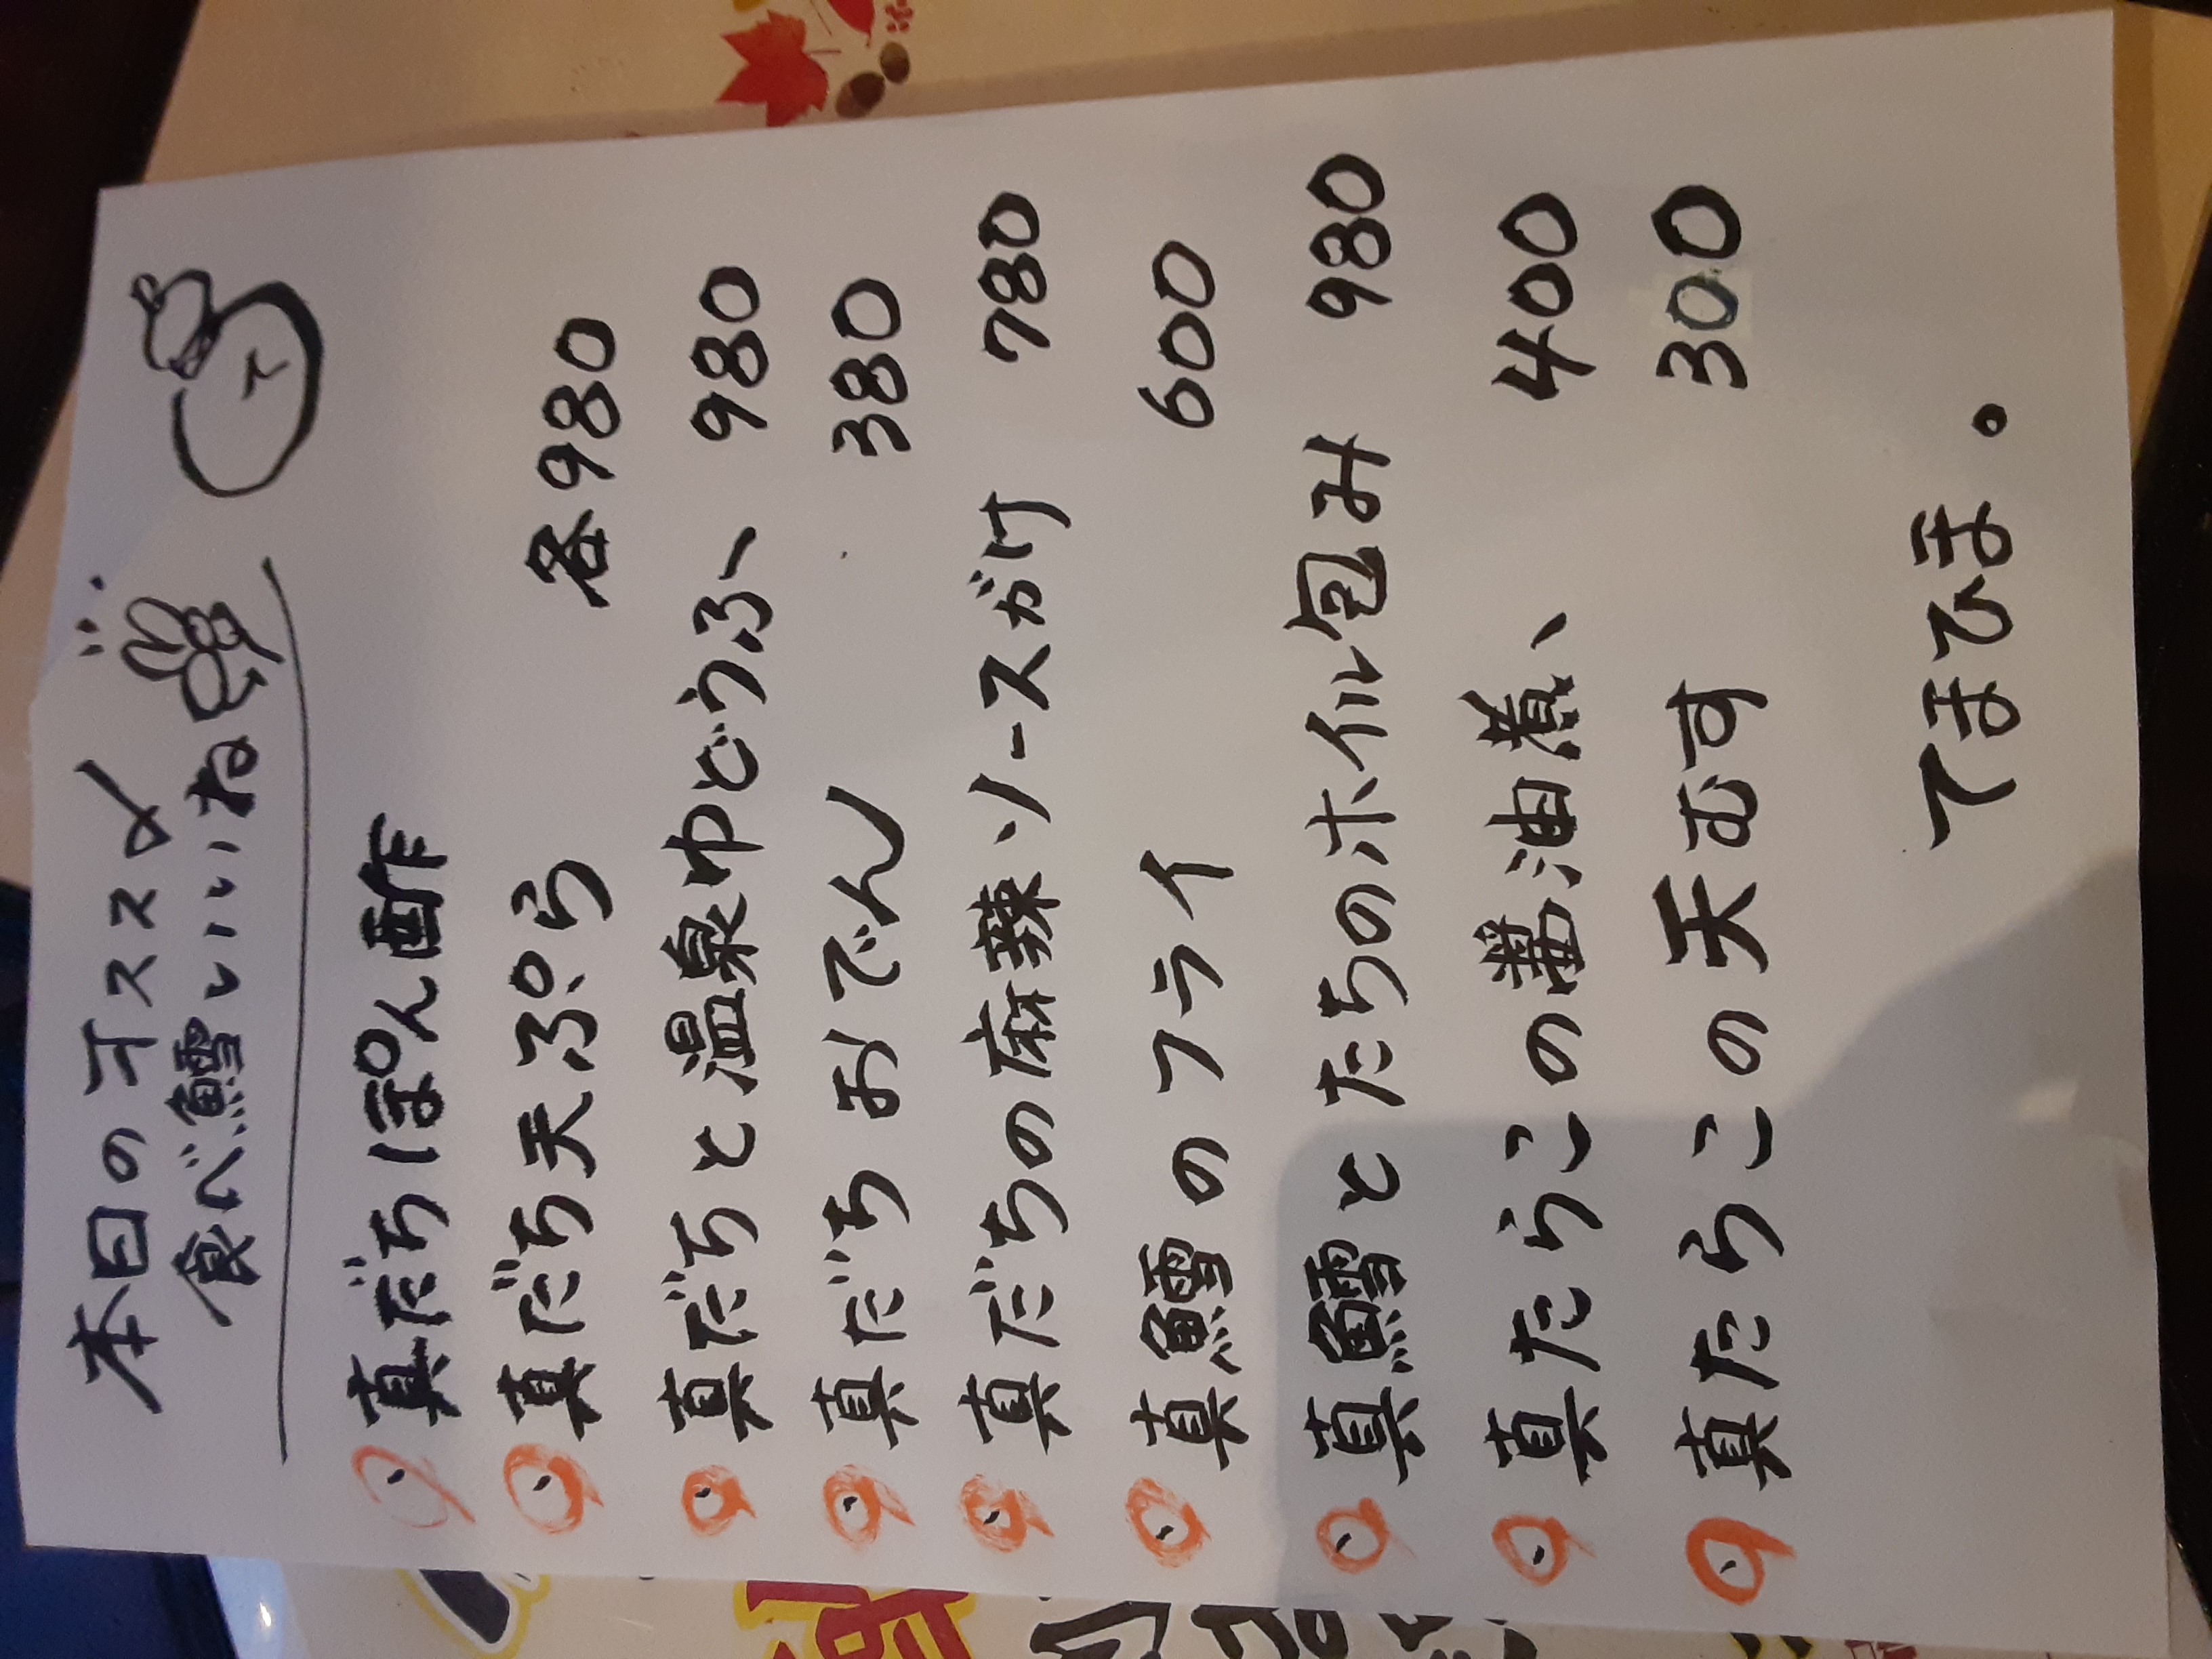 本日のオススメ
食べ鱈いいね
て
真だちぽん酢
真だち天ぷら 各980
真だちと温泉ゆどうふ 980
真だちおでん 380
真だちの麻辣ソースがけ 780
真鱈のフライ 600
真鱈とたちのホイル包み 980
真たらこの醤油煮 400
真たらこの天むす 300
てまひま。